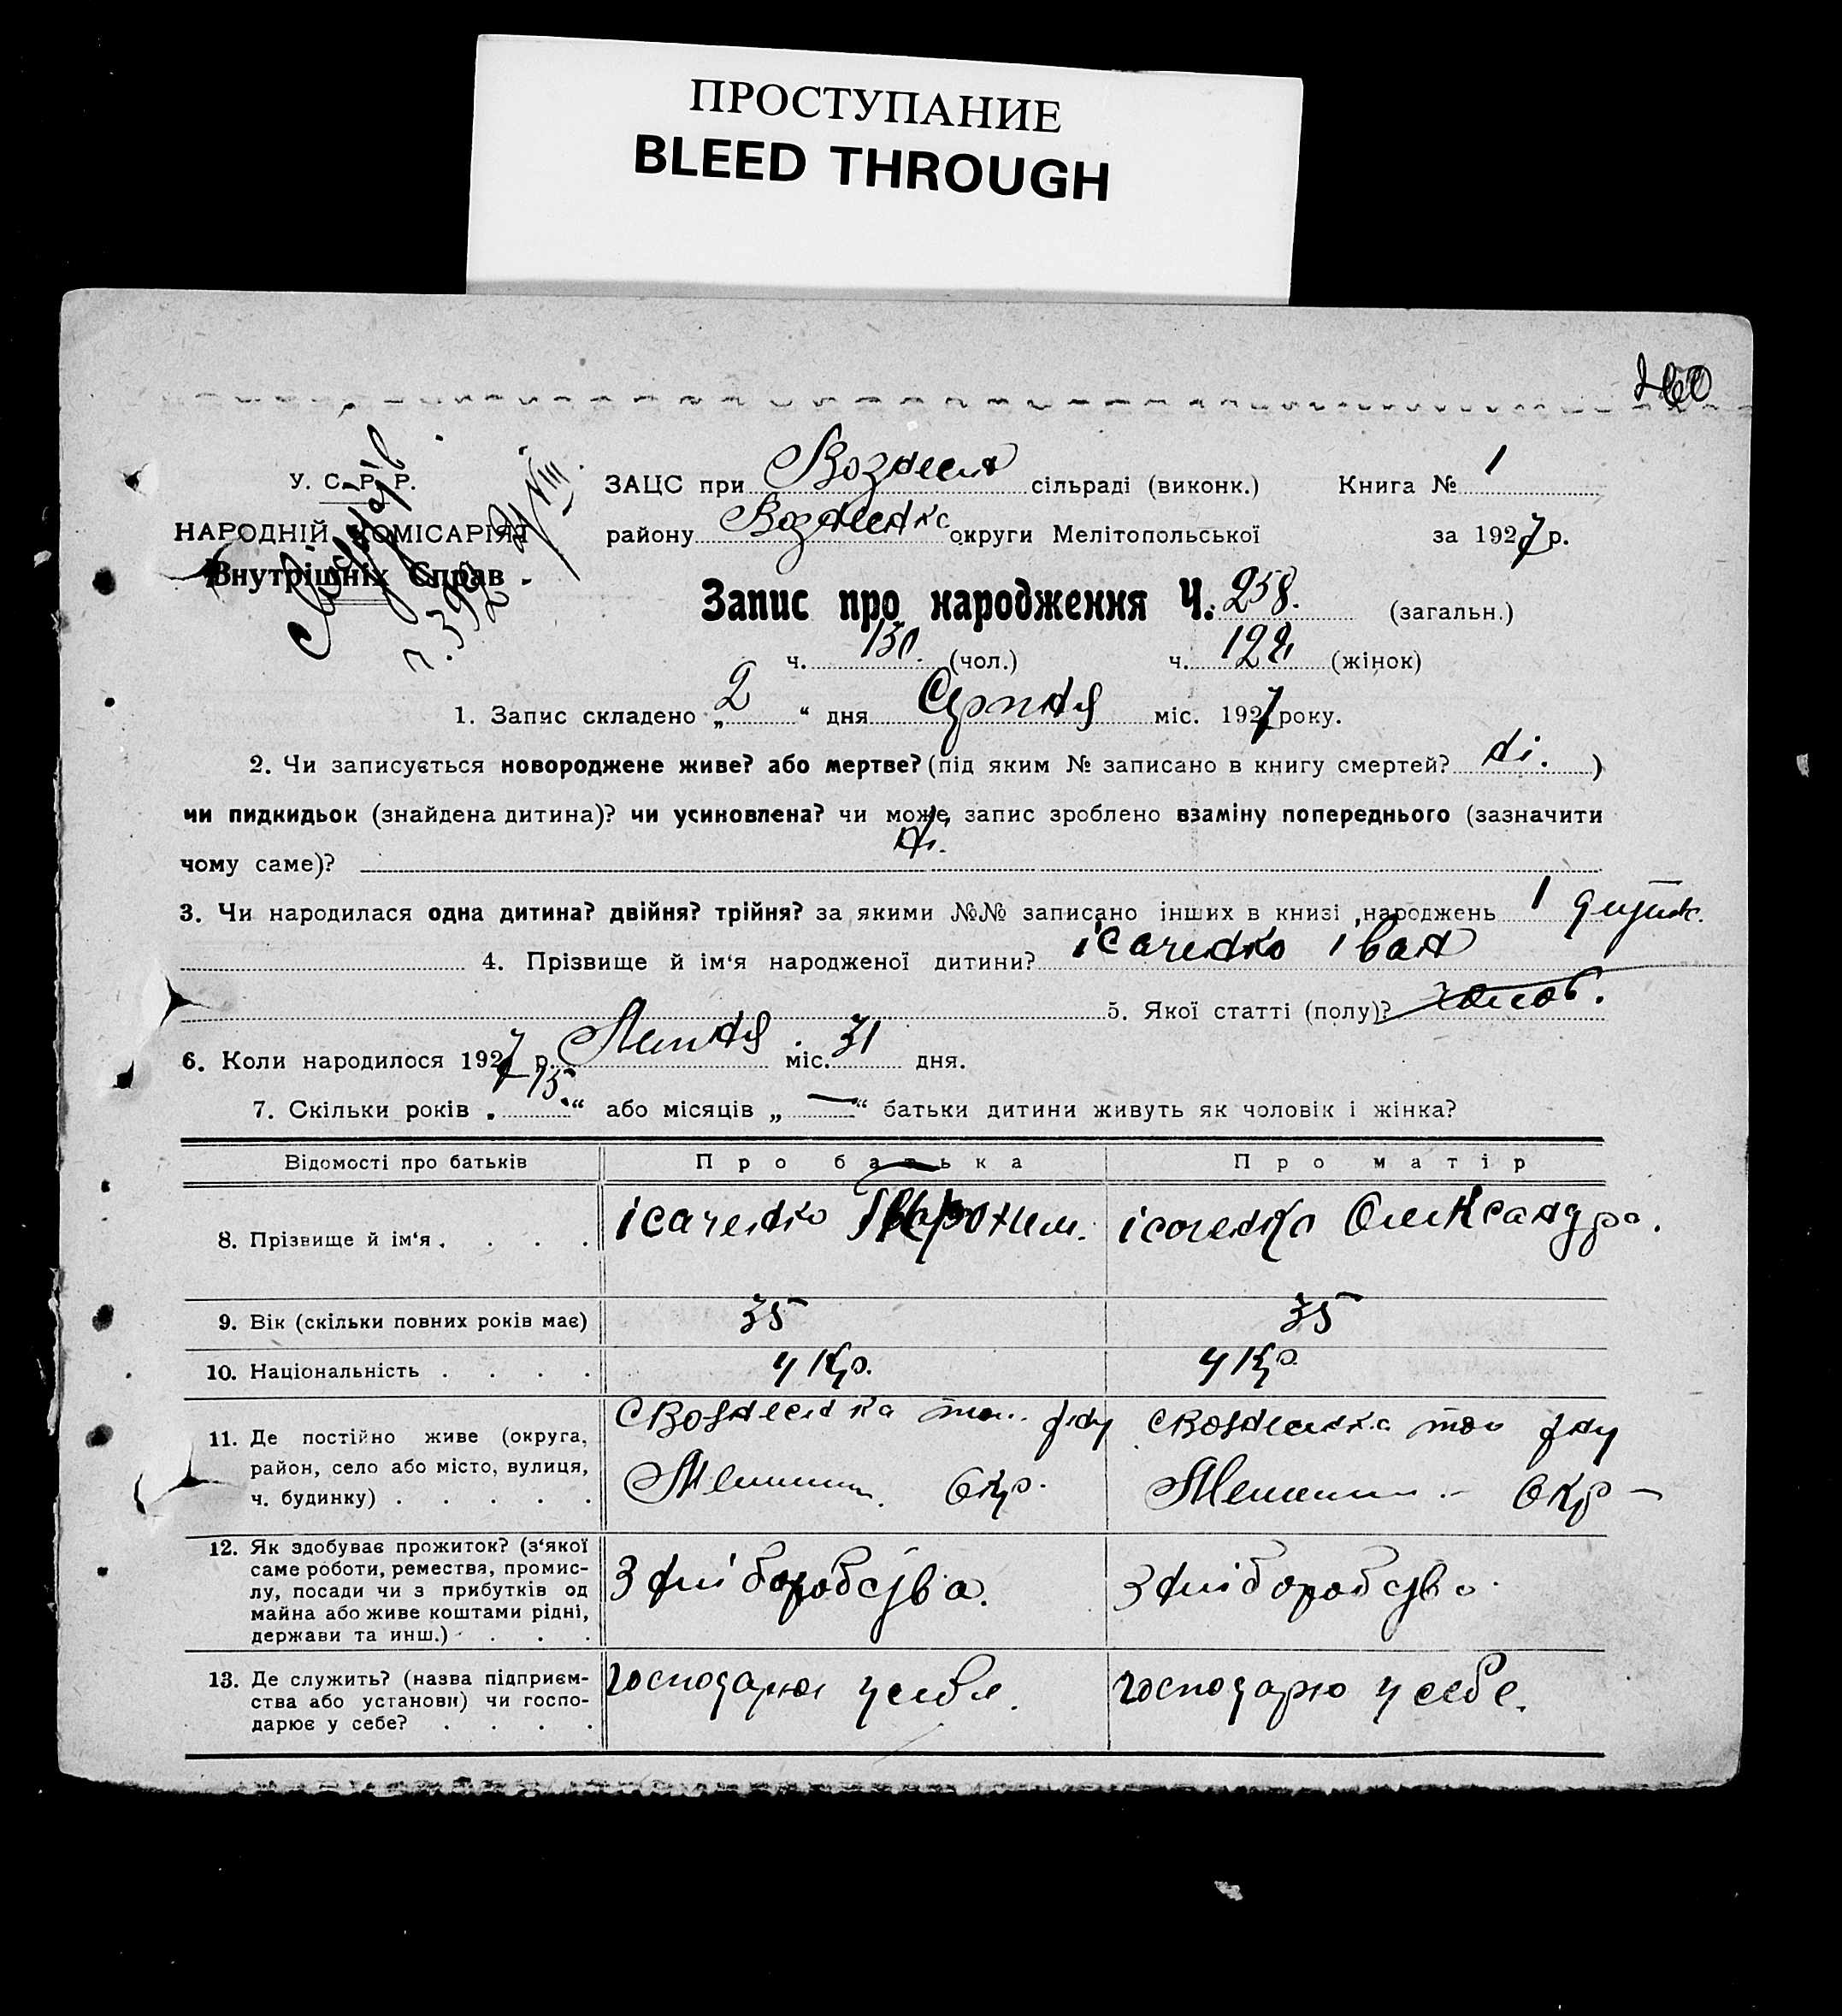 ПРОСТУПАНИЕ
BLEED THROUGH
У. С. Р. Р.
НАРОДНІЙ КОМІСАРІЯТ
Внутрішніх Справ
ЗАЦС при Вознесен сільраді (виконк.) Книга № 1
району округи Мелітопольської за 1927 р.
Запис про народження Ч. 258. (загальн.)
ч. 130. (чол.) ч. (жінок)
1. Запис складено „ 2 “ дня Серпня міс. 1927 року.
2. Чи записується новороджене живе? або мертве? (під яким № записано в книгу смертей? ні. )
чи пидкидьок (знайдена дитина)? чи усиновлена? чи може, запис зроблено взаміну попереднього (зазначити
чому саме)? ні.
3. Чи народилася одна дитина? двійня? трійня? за якими №№ записано інших в книзі народжень 1
4. Прізвище й ім‘я народженої дитини? ісаченко іван
5. Якої статті (полу)? чолов.
6. Коли народилося 1927 р. Липня міс. 31 дня.
7. Скільки років „ 15. “ або місяців „ — “ батьки дитини живуть як чоловік і жінка?
Відомості про батьків Про батька Про матір
8. Прізвище й ім‘я . . . . ісаченко ісаченко Олександра.
9. Вік (скільки повних років має) 35 35
10. Національність . . . . укр. укр.
11. Де постійно живе (округа,
район, село або місто, вулиця,
ч. будинку) . . . . . с Вознесенка с Вознесенка
Окр. Окр —
12. Як здобуває прожиток? (з‘якої
саме роботи, ремества, промис-
лу, посади чи з прибутків од
майна або живе коштами рідні,
держави та инш.) . . . З хліборобства. З хліборобства
13. Де служить? (назва підприєм-
ства або установи) чи госпо-
дарює у себе? . . . . господарює у себе. господарю у себе.